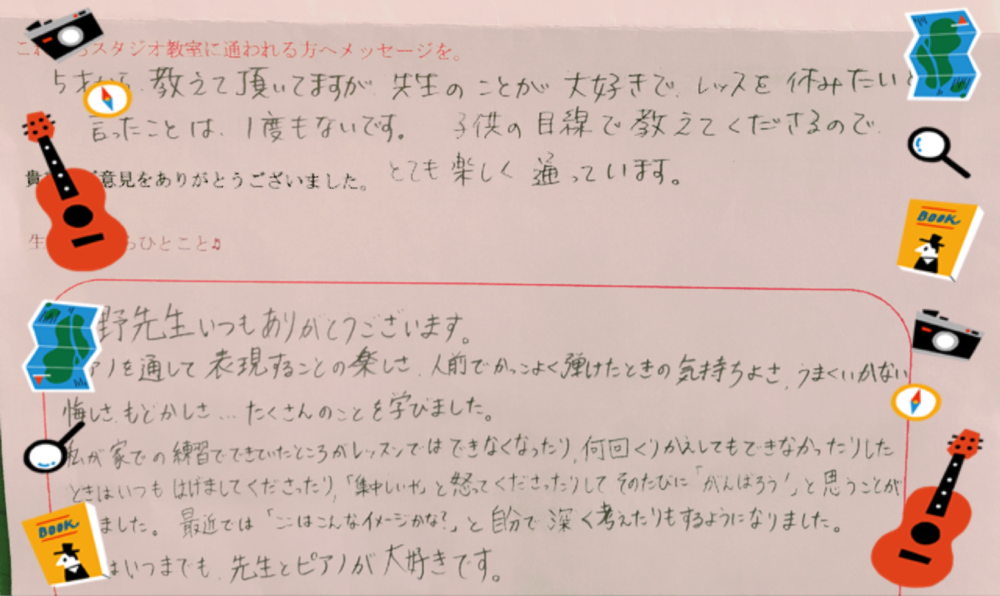 こ スタジオ教室に通われる方へメッセージを。
5才から、教えて頂いてますが、先生のことが大好きで、レッスを休みたいと
言ったことは、1度もないです。 子供の目線で教えてくださるので、
とても楽しく通っています。
貴 意見をありがとうございました。
生 らひとこと♫
野先生いつもありがとうございます。
アノを通して表現することの楽しさ、人前でかっこよく弾けたときの気持ちよさ、うまくいかない
悔しさ、もどかしさ…たくさんのことを学びました。
私が家での練習でできていたところがレッスンではできなくなったり、何回くりかえしてもできなかったりした
ときはいつもはげましてくださったり、「集中しいや」と怒ってくださったりしてそのたびに「がんばろう!」と思うことが
ました。 最近では「ここはこんなイメージかな?」と自分で深く考えたりもするようになりました。
はいつまでも、先生とピアノが大好きです。
BOOK
BOOK